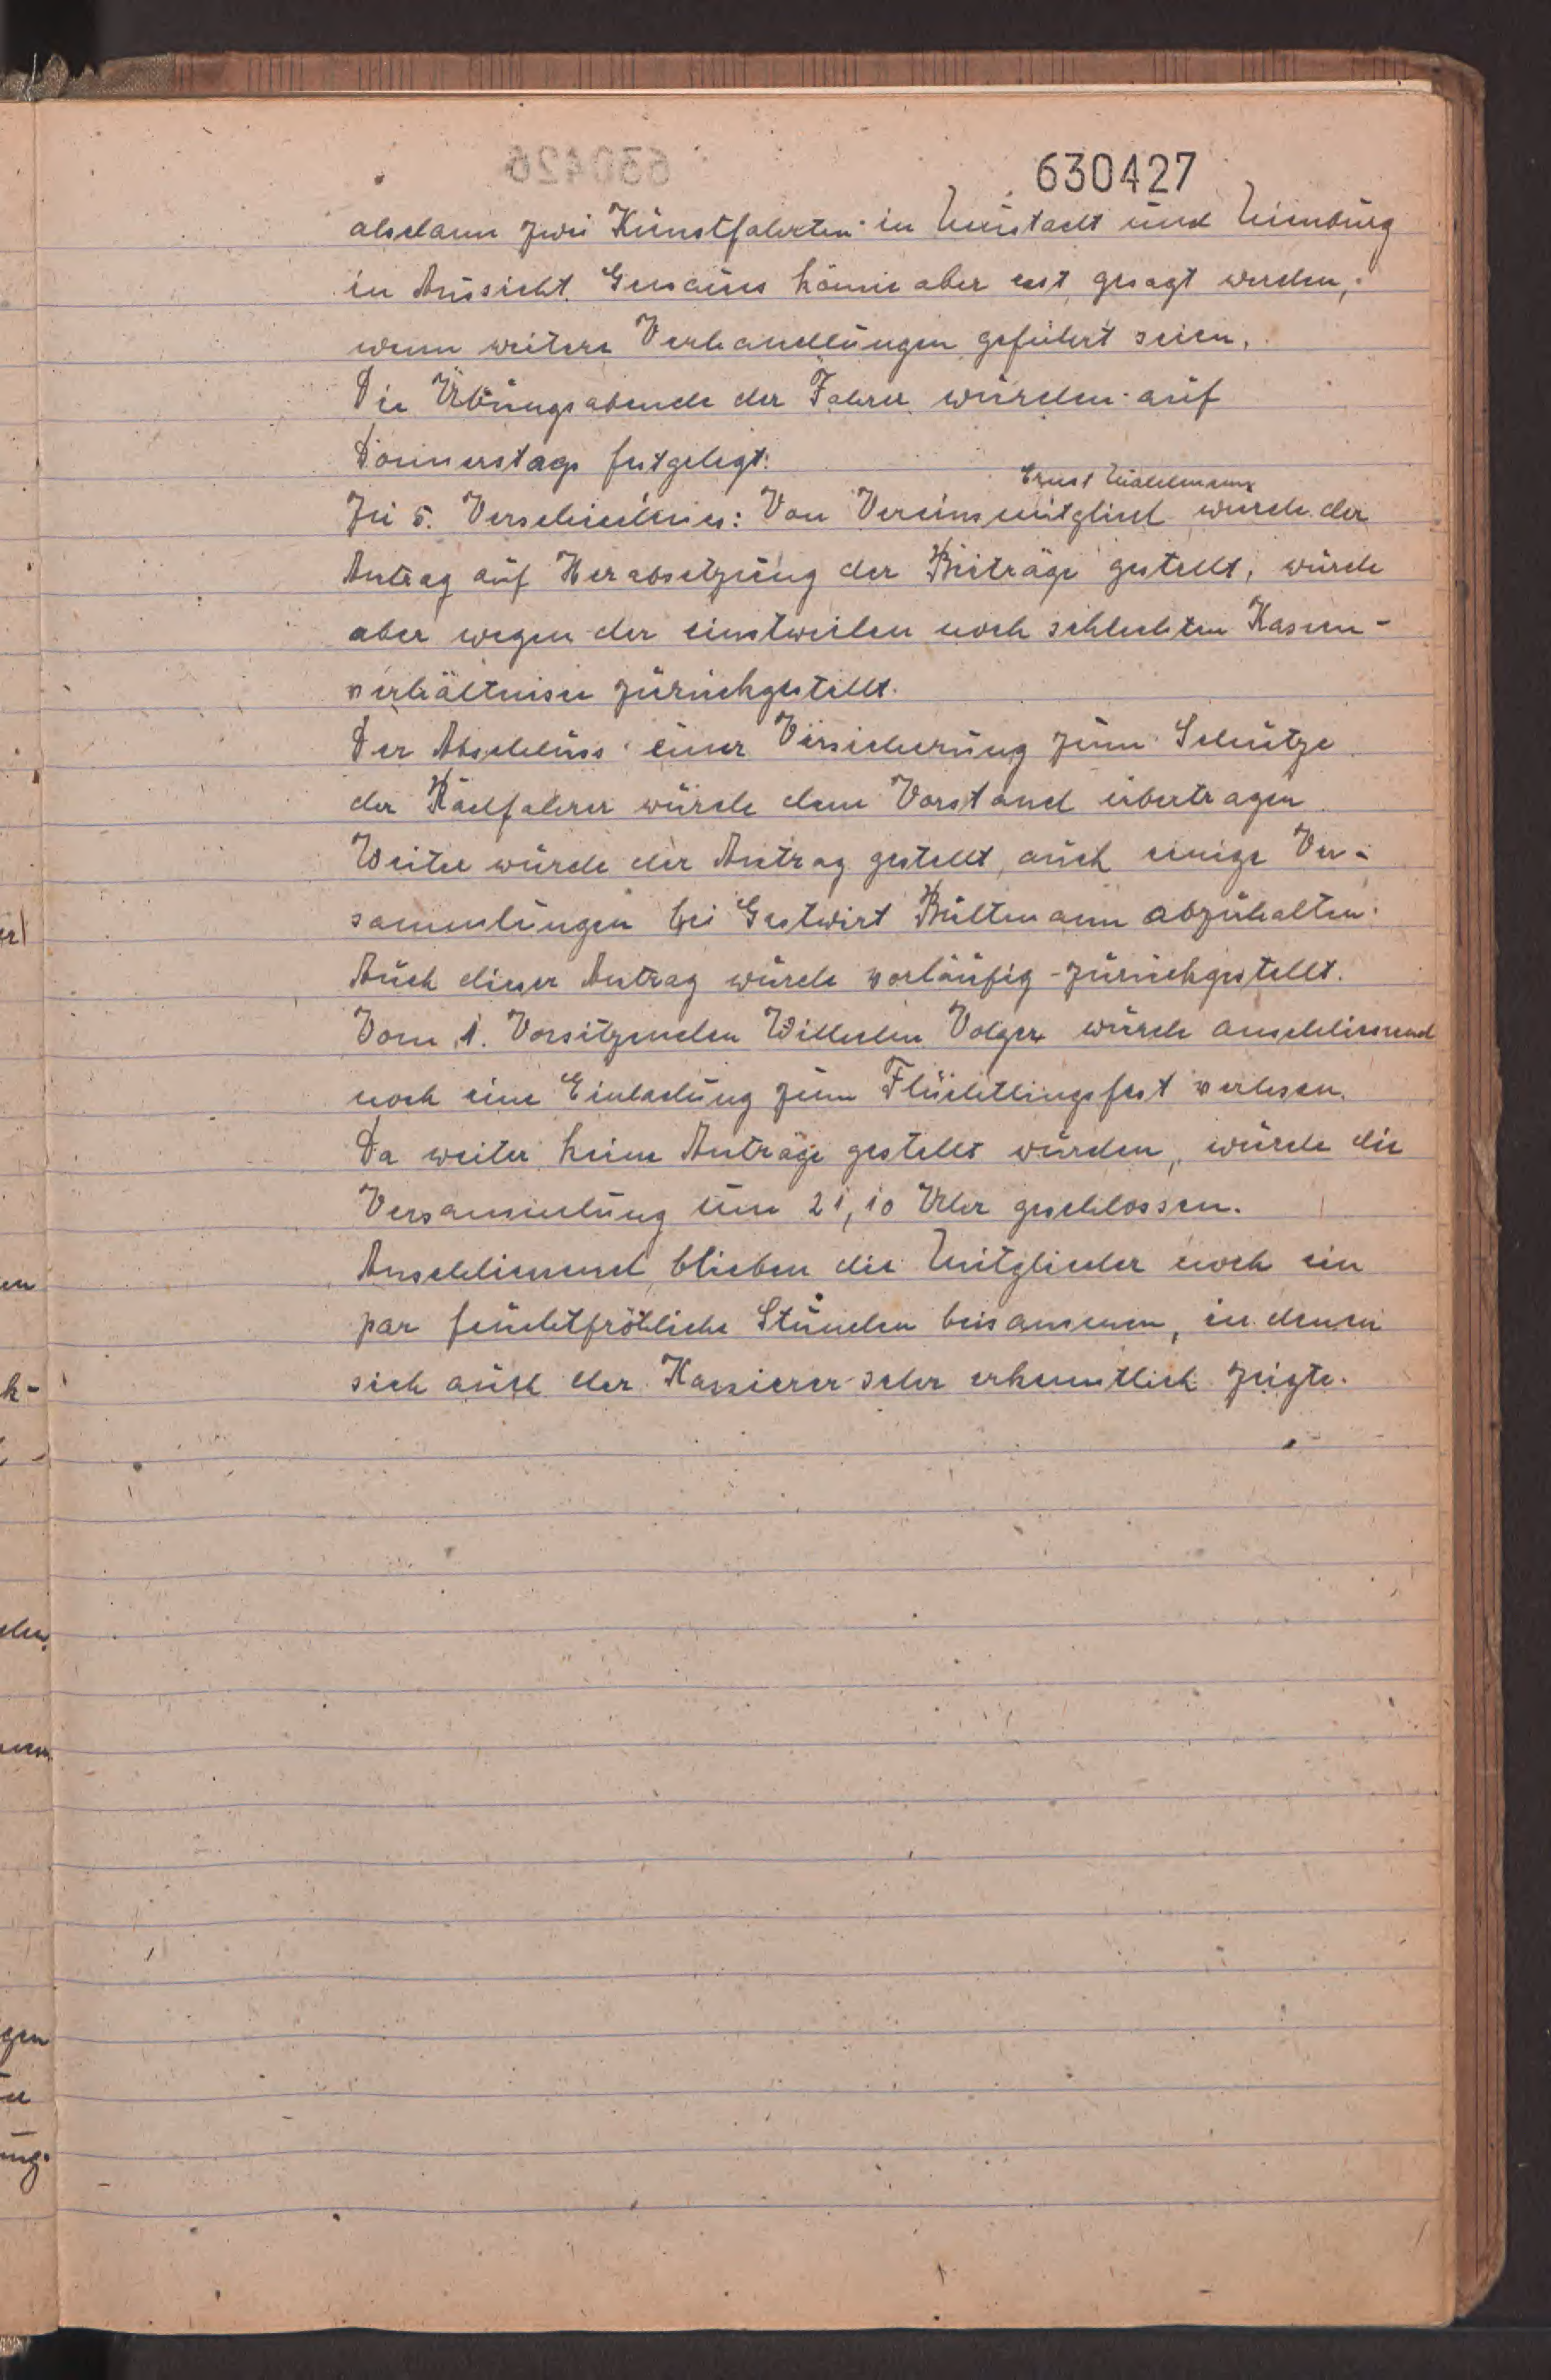 630427
alsdann zwei Kunstfahrten in Neustadt und Nienburg
in Aussicht. Genaues könne aber erst gesagt werden,
wenn weitere Verhandlungen geführt seien.
Die Übungsabende der Fahrer wurden auf
Donnerstags festgelegt.
Ernst
Zu 5. Verschiedenes: Von Vereinsmitglied wurde der
Antrag auf Herabsetzung der Beiträge gestellt, wurde
aber wegen der einstweilen noch schlechten Kassen-
verhältnisse zurückgestellt.
Der Abschluss einer Versicherung zum Schutze
der Radfahrer wurde dem Vorstand übertragen.
Weiter wurde der Antrag gestellt, auch einige Ver-
sammlungen bei Gastwirt Bültemann abzuhalten.
Auch dieser Antrag wurde vorläufig zurückgestellt.
Vom 1. Vorsitzenden Wilhelm Volger wurde anschliessend
noch eine Einladung zum Flüchtlingsfest verlesen.
Da weiter keine Anträge gestellt wurden, wurde die
Versammlung um 21,10 Uhr geschlossen.
Anschliessend blieben die Mitglieder noch ein
par feuchtfröhliche Stunden beisammen, in denen
sich auch der Kassierer sehr erkenntlich zeigte.